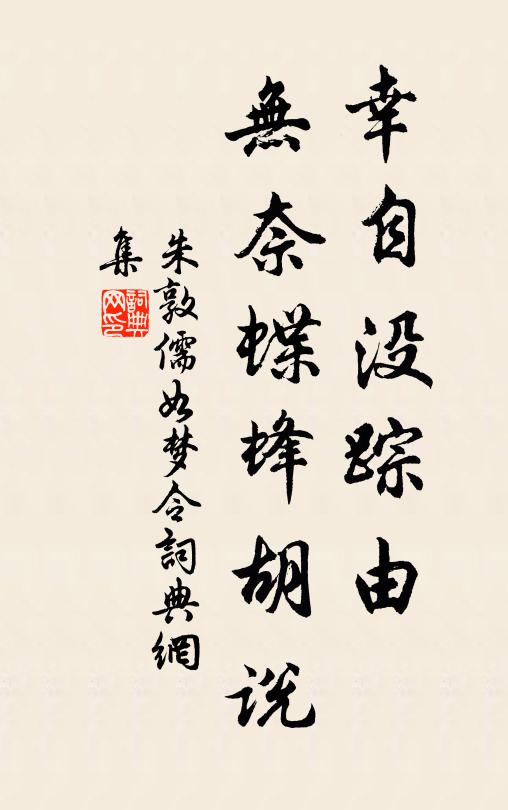 幸自没踪由
無奈蝶蜂胡说
朱敦儒如梦令詞典網
集
詞典
网印